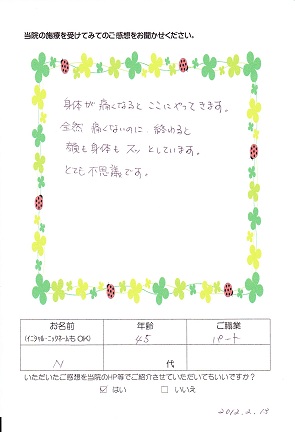 当院の施療を受けてみてのご感想をお聞かせください。
身体が痛くなると ここにやってきます。
全然 痛くないのに、終わると
顔も身体も スッとしています。
とても不思議です。
お名前 年齢 ご職業
(イニシャル・ニックネームもOK) 45 パート
N 代
いただいたご感想を当院のHP等でご紹介させていただいてもいいですか？
☑ はい □ いいえ
2012.2.19